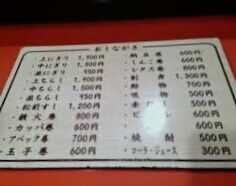 おしながき
上にぎり 1,900円
中にぎり 1,500円
並にぎり 950円
上ちらし 1,900円
中ちらし 1,500円
並ちらし 950円
松前すし 1,200円
鉄火巻 800円
カッパ巻 600円
アベック巻 700円
玉子巻 600円
納豆巻 600円
しんこ巻 600円
レタス巻 800円
刺身 1,300円
酢物 700円
吸物 500円
500円
600円
600円
焼酎 500円
コーラ・ジュース 300円